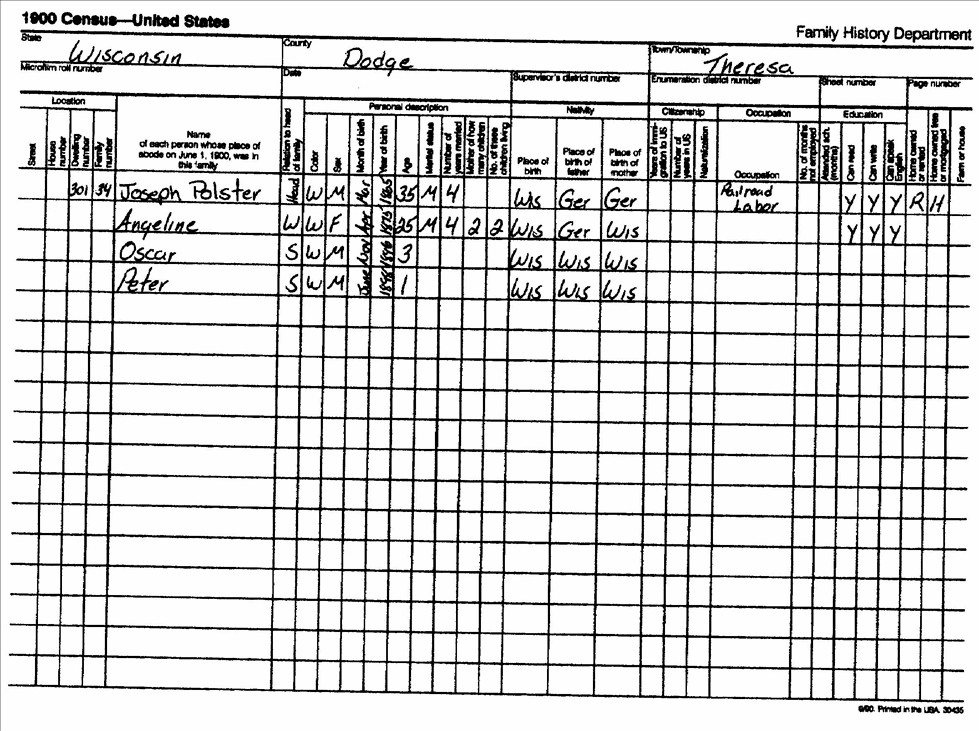 1900 Census—United States
Family History Department
State
Wisconsin
County
Dodge
Town/Township
Theresa
Microfilm roll number
Date
Supervisor's district number
Enumeration district number
Sheet number
Page number
Location
Personal description
Nativity
Citizenship
Occupation
Education
Street
House number
Dwelling number
Family number
Name
of each person whose place of
abode on June 1, 1900, was in
this family
Relation to head of family
Color
Sex
Month of birth
Year of birth
Age
Marital status
Number of years married
Mother of how many children
No. of these children living
Place of birth
Place of birth of father
Place of birth of mother
Years of immigration to US
Number of years in US
Naturalization
Occupation
No. of months not employed
Attended sch. (months)
Can read
Can write
Can speak English
Home owned or rented
Home owned free or mortgaged
Farm or house
301 34 Joseph Polster Head W M Mar 1865 35 M 4 Wis Ger Ger Railroad Labor Y Y Y R H
Angeline W W F Apr 1875 25 M 4 2 2 Wis Ger Wis Y Y Y
Oscar S W M Nov 1896 3 Wis Wis Wis
Peter S W M June 1898 1 Wis Wis Wis
6/90. Printed in the USA. 30435